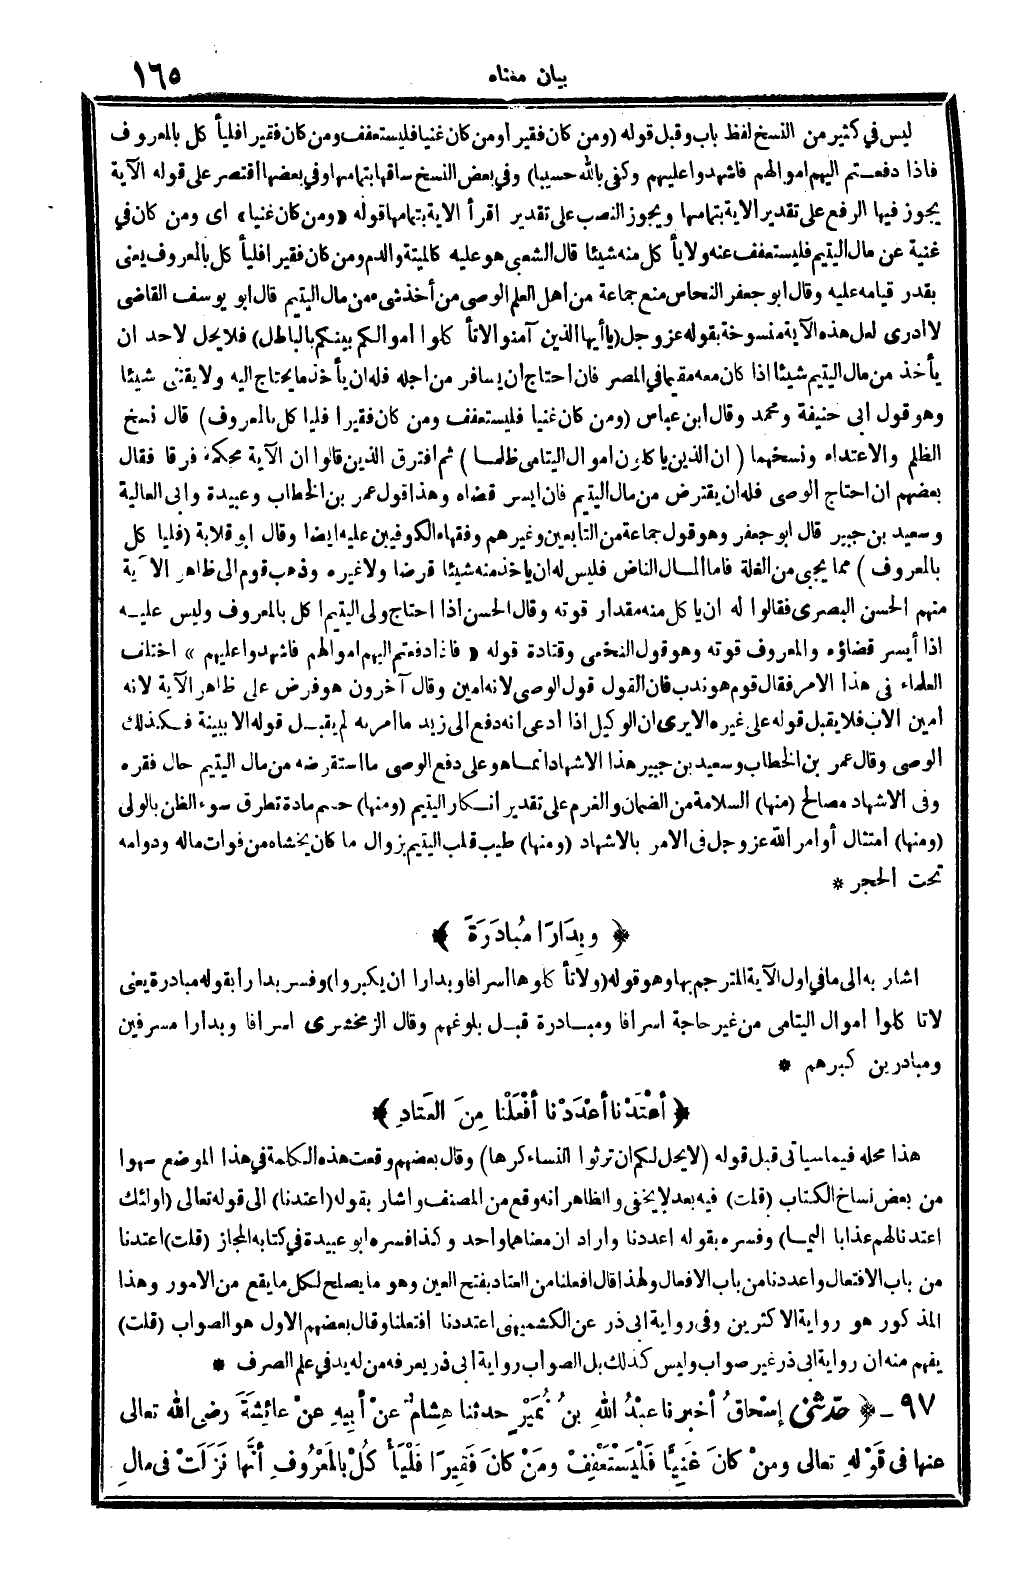 بيان معناه ١٦٥
ليس في كثير من النسخ لفظ باب وقبل قوله (ومن كان فقيرا ومن كان غنيا فليستعفف ومن كان فقيرا فليأ كل بالمعروف
فاذا دفعـتم اليهم اموالهم فاشهدوا عليهم وكفى بالله حسيبا) وفي بعض النسخ ساقها بتمامها وفي بعضها أقتصر على قوله الآية
يجوز فيها الرفع على تقدير الاية بتمامها ويجوز النصب على تقدير اقرأ الاية بتمامها قوله «ومن كان غنيا» اى ومن كان في
غنية عن مال اليتيم فليستعفف عنه ولا يأ كل منه شيئا قال الشعبي هو عليه كالميتة والدم ومن كان فقيرا فليأ كل بالمعروف يعنى
بقدر قيامه عليه وقال ابو جعفر النحاس منع جماعة من اهل العلم الوصى من أخذ شىء من مال اليتيم قال ابو يوسف القاضى
لا ادرى لعل هذه الآية منسوخة بقوله عز وجل (يا أيها الذين آمنوا لا تأ كلوا اموالكم بينكم بالباطل) فلا يحل لاحد ان
يأخذ من مال اليتيم شيئا اذا كان معه مقيما في المصر فان احتاج ان يسافر من اجله فله ان يأخذ ما يحتاج اليه ولا يقتنى شيئا
وهو قول ابى حنيفة ومحمد وقال ابن عباس (ومن كان غنيا فليستعفف ومن كان فقيرا فليا كل بالمعروف) قال نسخ
الظلم والاعتداء ونسخهما ( ان الذين يا كلون اموال اليتامى ظلما ) ثم افترق الذين قالوا ان الآية محكمة فرقا فقال
بعضهم ان احتاج الوصى فله ان يقترض من مال اليتيم فان ايسر قضاه وهذا قول عمر بن الخطاب وعبيدة وابى العالية
وسعيد بن جبير قال ابو جعفر وهو قول جماعة من التابعين وغيرهم وفقهاء الكوفيين عليه ايضا وقال ابو قلابة (فليا كل
بالمعروف ) مما يجبي من الغلة فاما المـال الناض فليس له ان ياخذ منه شيئا قرضا ولا غيره وذهب قوم الى ظاهر الآية
منهم الحسن البصرى فقالوا له ان يا كل منه مقدار قوته وقال الحسن اذا احتاج ولى اليتيم اكل بالمعروف وليس عليـه
اذا أيسر قضاؤه والمعروف قوته وهو قول النخعى وقتادة قوله « فاذا دفعتم اليهم اموالهم فاشهدوا عليهم » اختلف
العلماء فى هذا الامر فقال قوم هو ندب فان القول قول الوصى لانه امين وقال آخرون هو فرض على ظاهر الآية لانه
امين الاب فلا يقبل قوله على غيره الا يرى ان الوكيل اذا ادعى انه دفع الى زيد ما امر به لم يقبـل قوله الا ببينة فـكذلك
الوصى وقال عمر بن الخطاب وسعيد بن جبير هذا الاشهاد انمـا هو على دفع الوصى ما استقرضه من مال اليتيم حال فقره
وفى الاشهاد مصالح (منها) السلامة من الضمان والغرم على تقدير انـكار اليتيم (ومنها) حسم مادة تطرق سوء الظن بالولى
(ومنها) امتثال أوامر الله عز وجل فى الامر بالاشهاد (ومنها) طيب قلب اليتيم بزوال ما كان يخشاه من فوات ماله ودوامه
تحت الحجر *
﴿ وبِدَارًا مُبادَرَةً ﴾
اشار به الى ما في اول الآية المترجم بها وهو قوله (ولا تأ كلوها اسرافا وبدارا ان يكبروا) وفسر بدارا بقوله مبادرة يعنى
لا تا كلوا اموال اليتامى من غير حاجة اسرافا ومبـادرة قبـل بلوغهم وقال الزمخشرى اسرافا وبدارا مسرفين
ومبادرين كبرهم *
﴿ أعْتَدْنا أعْدَدْنا أفْعَلْنا مِنَ العَتادِ ﴾
هذا محله فيما سياتى قبل قوله (لا يحل لكم ان ترثوا النساء كرها) وقال بعضهم وقعت هذه الكلمة في هذا الموضع سهوا
من بعض نساخ الكتاب (قلت) فيه بعد لا يخفى والظاهر انه وقع من المصنف واشار بقوله (اعتدنا) الى قوله تعالى (اولئك
اعتدنا لهم عذابا اليمـا) وفسره بقوله اعددنا واراد ان معناهما واحد وكذا فسره ابو عبيدة في كتابه المجاز (قلت) اعتدنا
من باب الافتعال واعددنا من باب الافعال ولهذا قال افعلنا من العتاد بفتح العين وهو ما يصلح لكل ما يقع من الامور وهذا
المذكور هو رواية الاكثرين وفى رواية ابى ذر عن الكشميهنى اعتددنا افتعلنا وقال بعضهم الاول هو الصواب (قلت)
يفهم منه ان رواية ابى ذر غير صواب وليس كذلك بل الصواب رواية ابى ذر يعرفه من له يد في علم الصرف *
٩٧ - ﴿ حدثنى إسْحاقُ أخبرنا عبْدُ اللهِ بنُ نُمَيْرٍ حدثنا هِشامٌ عنْ أبِيهِ عنْ عائِشَةَ رضى الله تعالى
عنها فى قَوْلِهِ تعالى ومنْ كانَ غَنِيًّا فَلْيَسْتَعْفِفْ ومَنْ كانَ فَقِيرًا فَلْيَأْ كُلْ بالمَعْرُوفِ أنَّها نَزَلَتْ فى مالِ